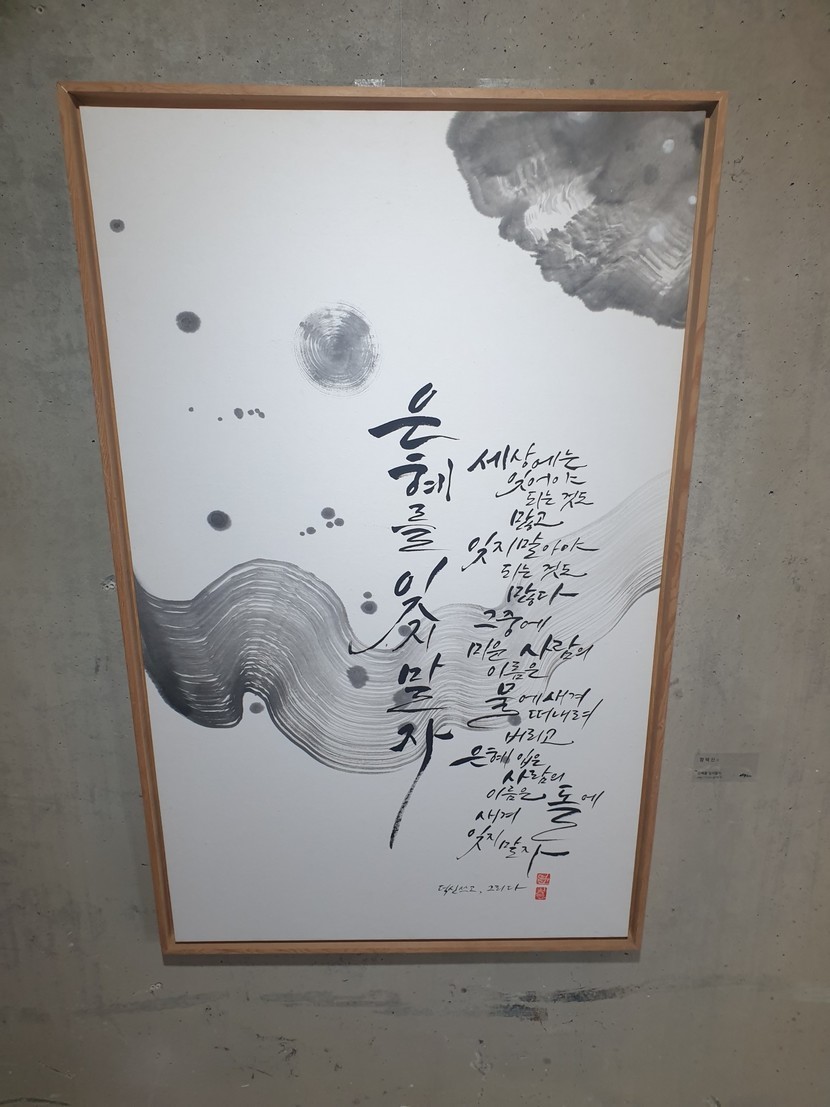 은혜를 잊지 말자
세상에는
잊어야
되는 것도
많고
잊지말아야
되는 것도
많다
그중에
미운 사람의
이름은
물에새겨
떠내려
버리고
은혜 입은
사람의
이름은 돌에
새겨
잊지 말자
덕신쓰고, 그리다